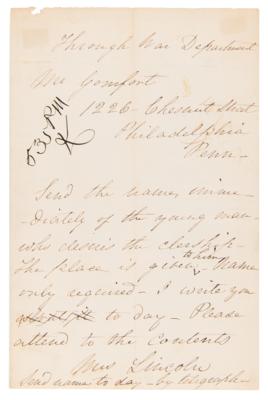 Through War Department
Mr Comfort
1226 Chesnut Street
Philadelphia
Penn -
Send the name, imme -
- diately of the young man -
who desires the clerkship -
The place is given to him, Name
only required - I write you
to day - Please
attend to the contents
Mrs Lincoln
Send name to day - by telegraph -